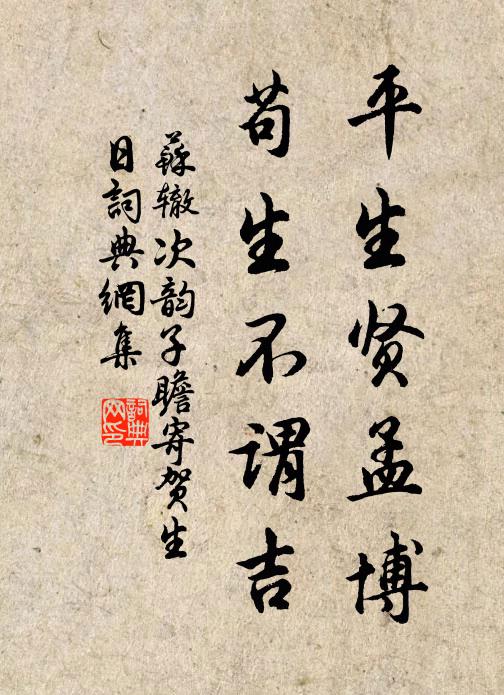 平生贤孟博
苟生不谓吉
蘇辙次韵子瞻寄贺生
日詞典網集
詞典
网印